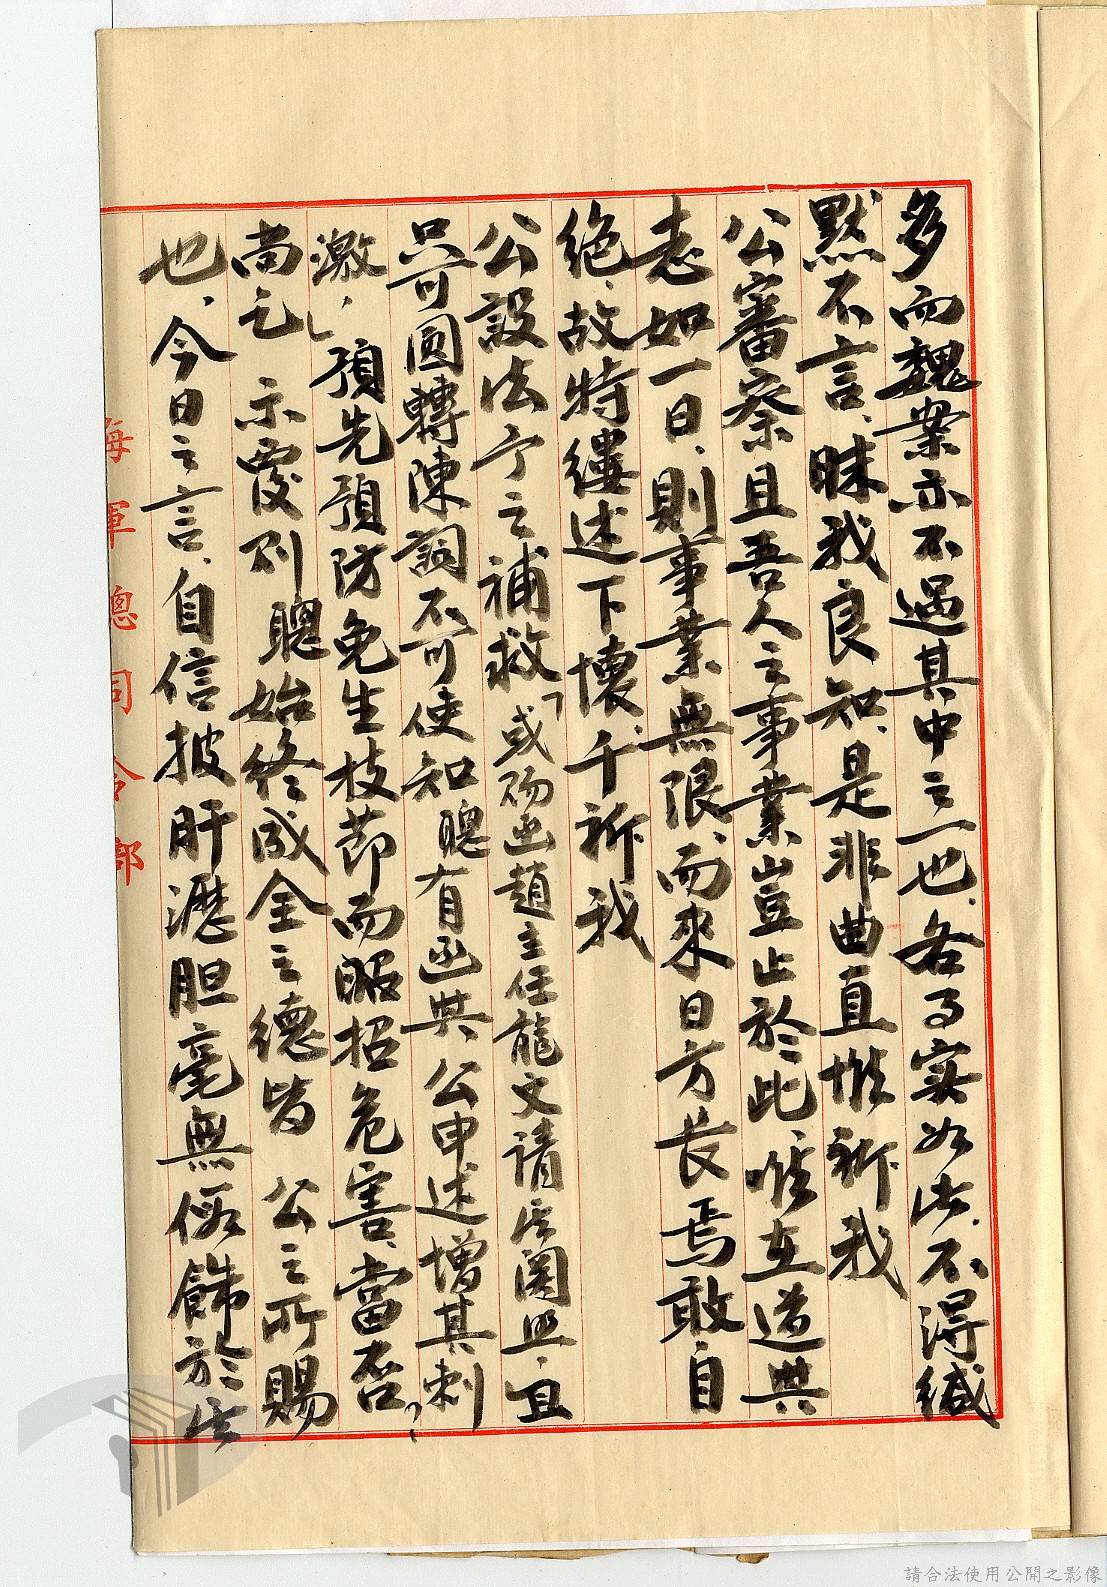 多而魏案亦不過其中之一也、各事實如此、不得緘
默不言、昧我良知、是非曲直惟祈我
公審察且吾人之事業豈止於此、唯在道與
志如一日、則事業無限、而來日方長焉敢自
絕、故特縷述下懷、千祈我
公設法予之補救「或賜函趙主任龍文請其關照、且
只可圓轉陳詞不可使知聰有函與公申述增其刺
激、」預先預防免生枝節而昭招危害、當否、
尚乞 示覆則 聰始終成全之德皆 公之所賜
也、今日之言、自信披肝瀝胆毫無假飾於其
海軍總司令部
請合法使用公開之影像